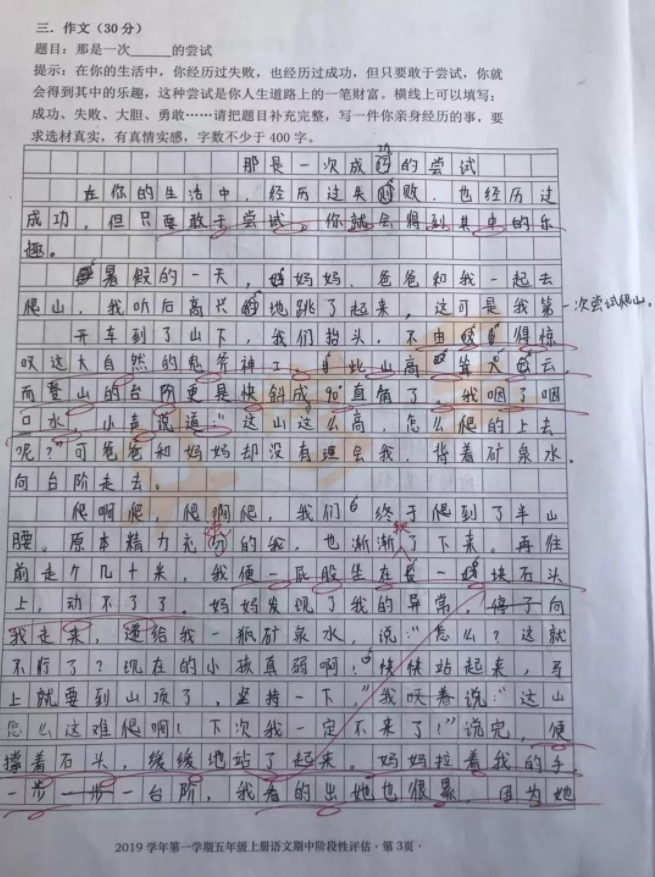 三．作文（30 分）
题目：那是一次______的尝试
提示：在你的生活中，你经历过失败，也经历过成功，但只要敢于尝试，你就
会得到其中的乐趣，这种尝试是你人生道路上的一笔财富。横线上可以填写：
成功、失败、大胆、勇敢……请把题目补充完整，写一件你亲身经历的事，要
求选材真实，有真情实感，字数不少于 400 字。
那是一次成功的尝试
在你的生活中，经历过失败，也经历过
成功，但只要敢于尝试，你就会得到其中的乐
趣。
暑假的一天，妈妈、爸爸和我一起去
爬山，我听后高兴地跳了起来，这可是我第一次尝试爬山。
开车到了山下，我们抬头，不由得惊
叹这大自然的鬼斧神工，此山高耸入云，
而登山的台阶更是快斜成90°直角了，我咽了咽
口水，小声说道："这山这么高，怎么爬的上去
呢？"可爸爸和妈妈却没有理会我，背着矿泉水，
向台阶走去。
爬啊爬，爬啊爬，我们终于爬到了半山
腰。原本精力充沛的我，也渐渐软了下来。再往
前走了几十米，我便一屁股坐在一块石头
上，动不了了。妈妈发现了我的异常，向
我走来，递给我一瓶矿泉水，说："怎么？这就
不行了？现在的小孩真弱啊！快快站起来，马
上就要到山顶了，坚持一下，"我叹着说："这山
怎么这难爬啊！下次我一定不来了！"说完，便
撑着石头，缓缓地站了起来。妈妈拉着我的手，
一步一步一台阶，我看的出她也很累，因为她
2019 学年第一学期五年级上册语文期中阶段性评估 · 第 3页 ·